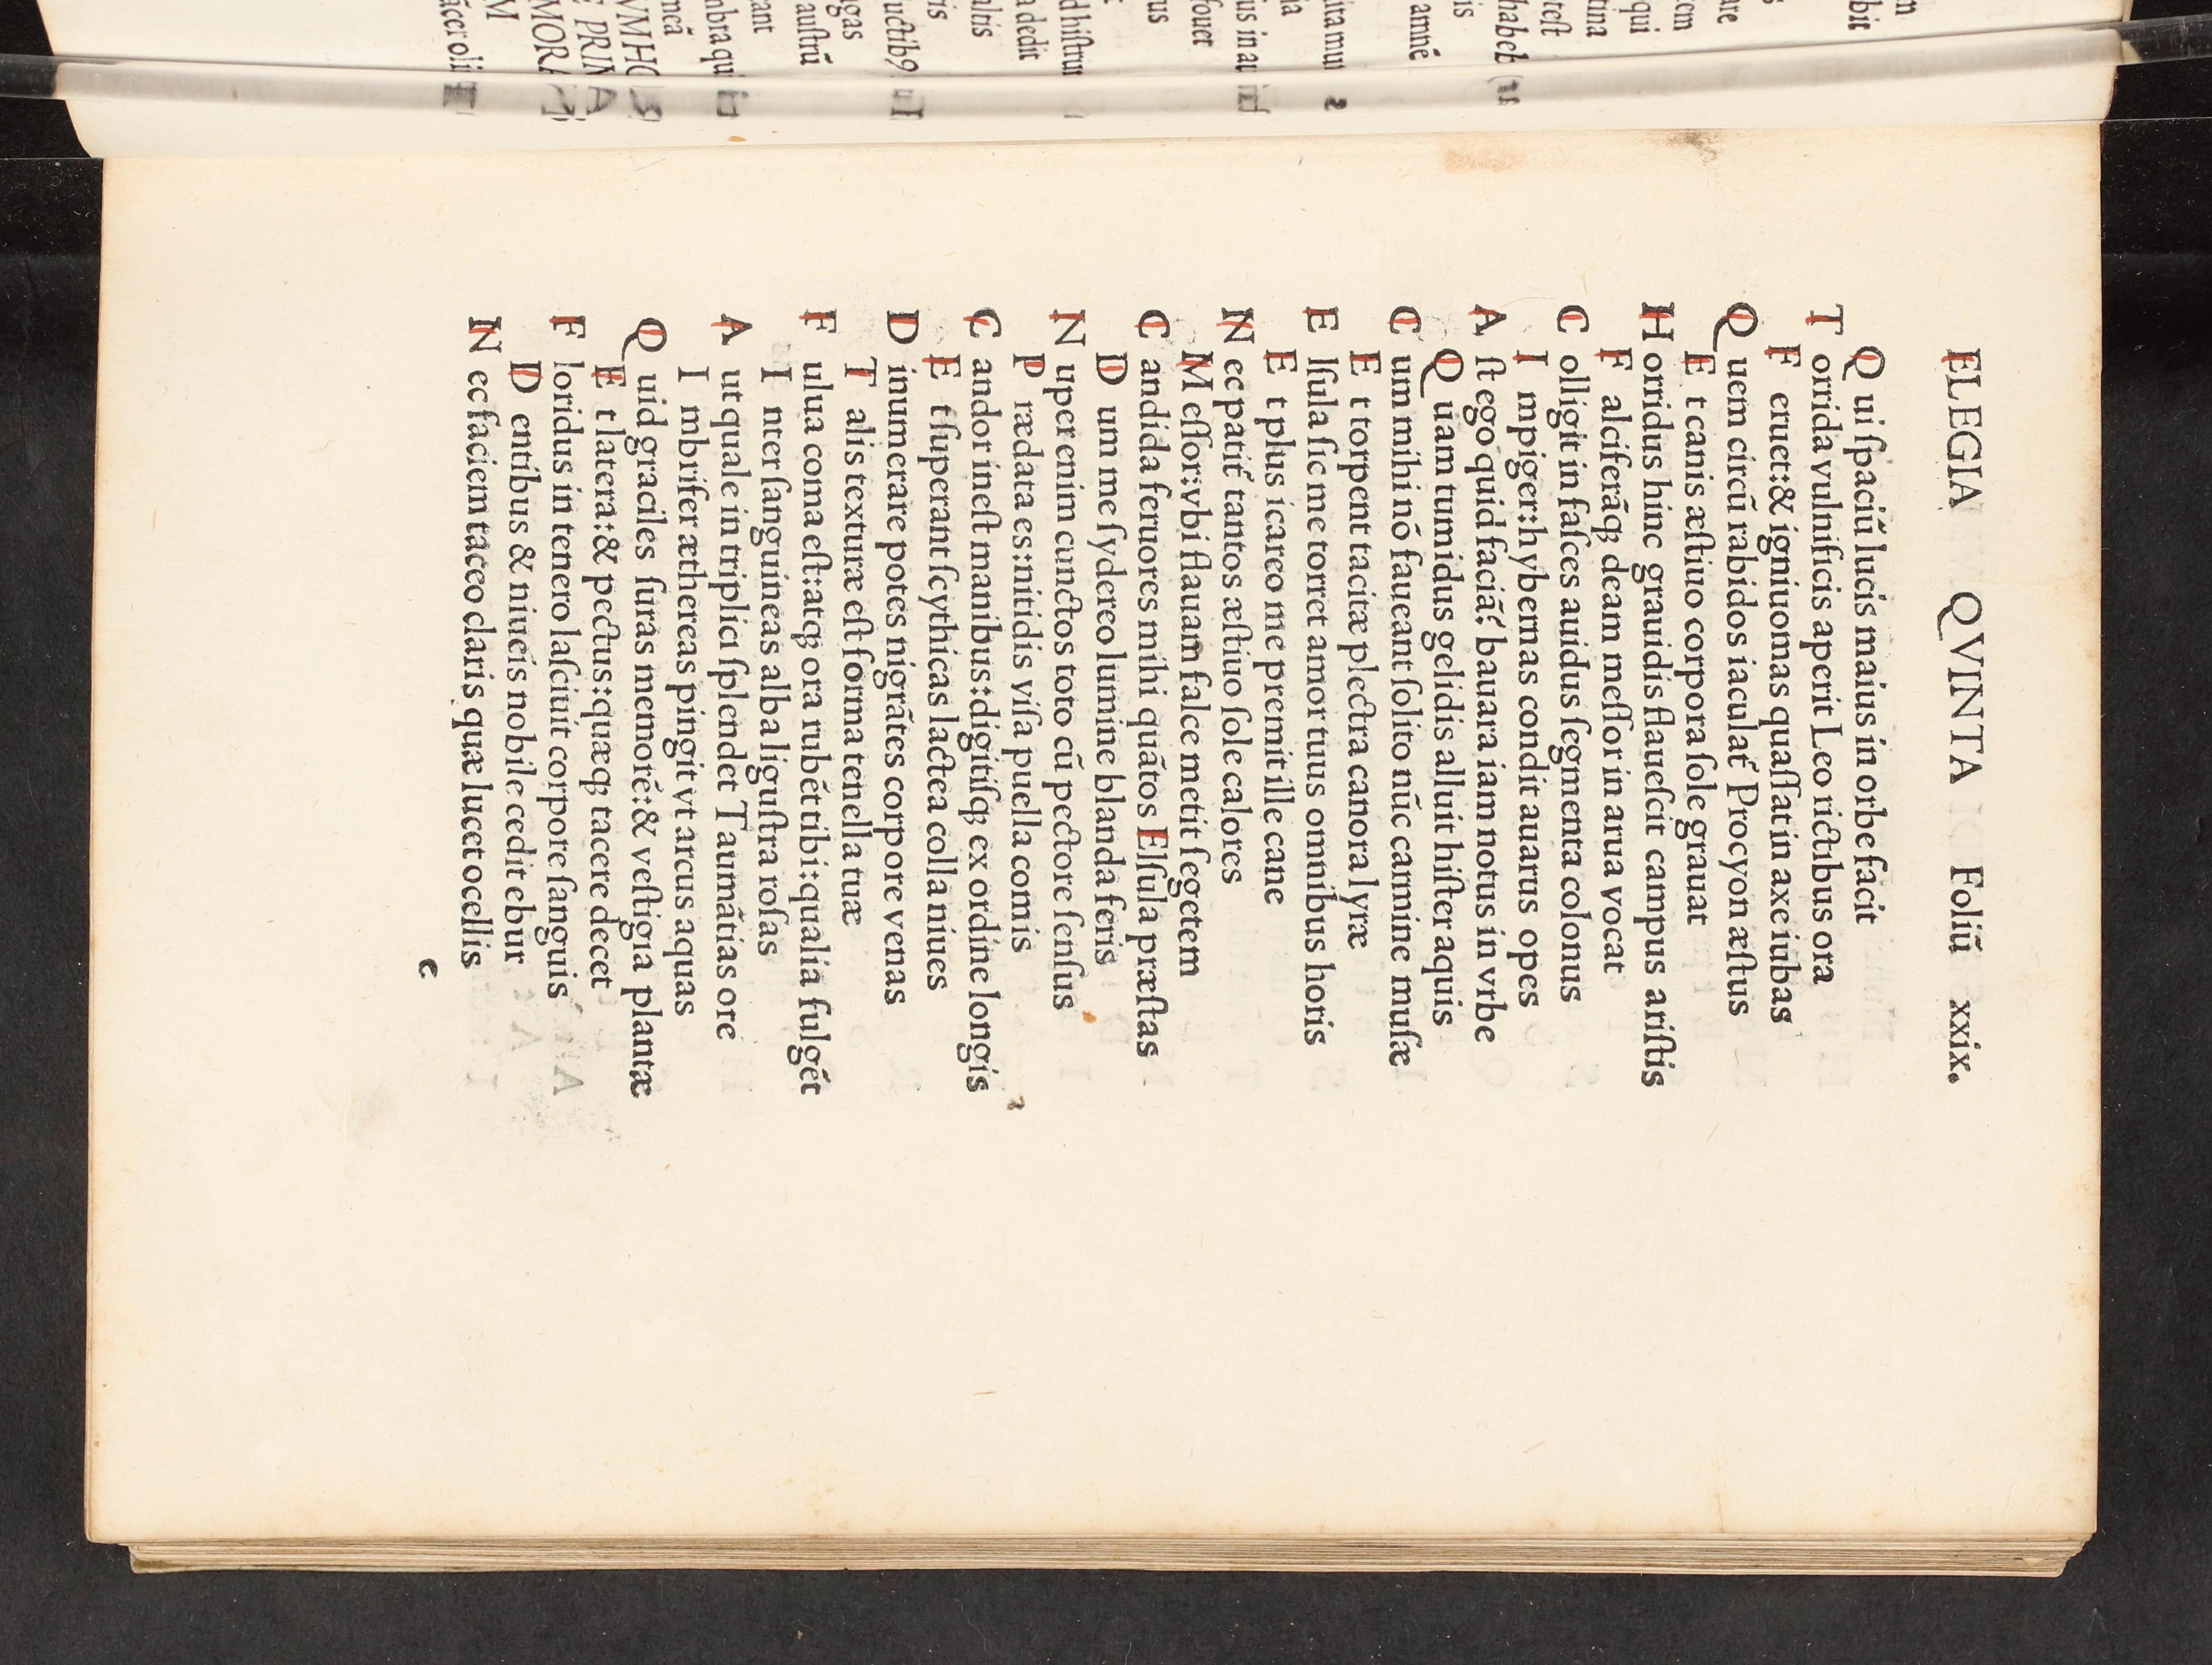 ELEGIA QVINTA Foliū xxix.
Qui ſpaciū lucis maius in orbe facit
Torrida vulnificis aperit Leo rictibus ora
Feruet:& igniuomas quaſſat in axe iubas
Quem circū rabidos iaculat᷑ Procyon æſtus
Et canis æſtiuo corpora ſole grauat
Horridus hinc grauidis flaueſcit campus ariſtis
Falciferāqꝫ deam meſſor in arua vocat
Colligit in faſces auidus ſegmenta colonus
Impiger:hybernas condit auarus opes
Aſt ego quid faciā? bauara iam notus in vrbe
Quam tumidus gelidis alluit hiſter aquis
Cum mihi nō faueant ſolito nūc carmine muſæ
Et torpent tacitæ plectra canora lyræ
Elſula ſic me torret amor tuus omnibus horis
Et plus icareo me premit ille cane
Nec patit᷑ tantos æſtiuo ſole calores
Meſſor:vbi flauam falce metit ſegetem
Candida feruores mihi quātos Elſula præſtas
Dum me ſydereo lumine blanda feris
Nuper enim cunctos toto cū pectore ſenſus
Prædata es:nitidis viſa puella comis
Candor ineſt manibus:digitiſqꝫ ex ordine longis
Et ſuperant ſcythicas lactea colla niues
Dinumerare potes nigrātes corpore venas
Talis texturæ eſt forma tenella tuæ
Fulua coma eſt:atqꝫ ora rubēt tibi:qualia fulgēt
Inter ſanguineas alba liguſtra roſas
Aut quale in triplici ſplendet Taumātias ore
Imbrifer æthereas pingit vt arcus aquas
Quid graciles ſuras memorē:& veſtigia plantæ
Et latera:& pectus:quæqꝫ tacere decet
Floridus in tenero laſciuit corpore ſanguis
Dentibus & niueis nobile cedit ebur
Nec faciem taceo claris quæ lucet ocellis
e